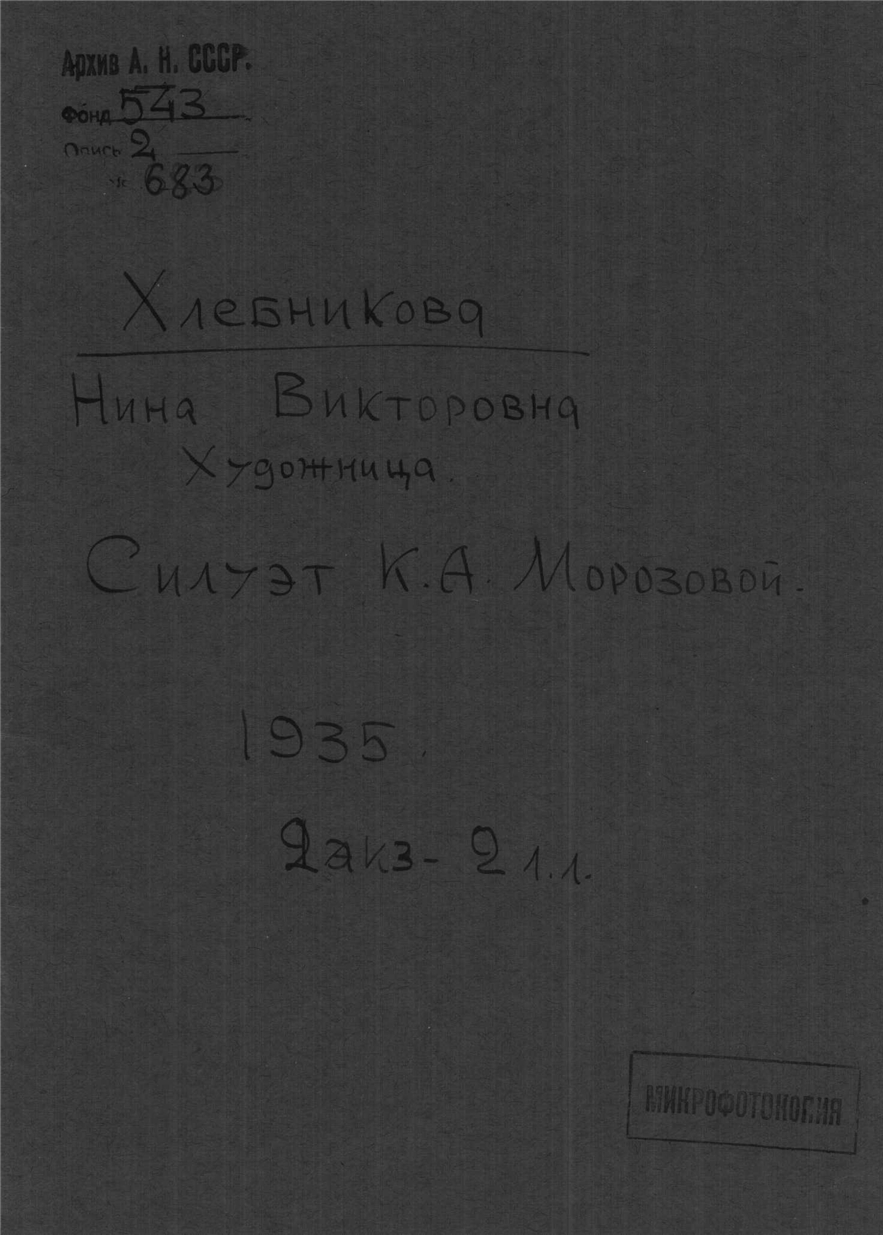 Архив А. Н. СССР.
Фонд 543
Опись 2
№ 683
Хлебникова
Нина Викторовна
Художница.
Силуэт К. А. Морозовой.
1935.
2 экз - 2 л.л.
МИКРОФОТОКОПИЯ